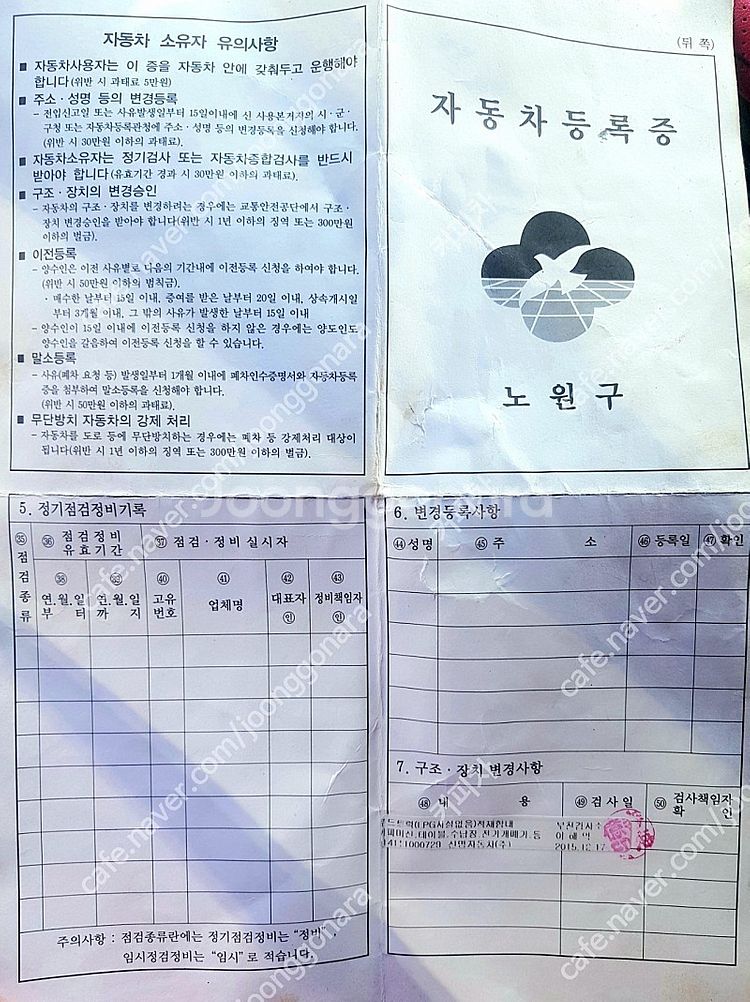 자동차 소유자 유의사항
■ 자동차사용자는 이 증을 자동차 안에 갖춰두고 운행해야
합니다(위반 시 과태료 5만원)
■ 주소·성명 등의 변경등록
- 전입신고일 또는 사유발생일부터 15일이내에 신 사용본거지의 시·군·
구청 또는 자동차등록관청에 주소·성명 등의 변경등록을 신청해야 합니다.
(위반 시 30만원 이하의 과태료).
■ 자동차소유자는 정기검사 또는 자동차종합검사를 반드시
받아야 합니다(유효기간 경과 시 30만원 이하의 과태료).
■ 구조·장치의 변경승인
- 자동차의 구조·장치를 변경하려는 경우에는 교통안전공단에서 구조·
장치 변경승인을 받아야 합니다(위반 시 1년 이하의 징역 또는 300만원
이하의 벌금).
■ 이전등록
- 양수인은 이전 사유별로 다음의 기간내에 이전등록 신청을 하여야 합니다.
(위반 시 50만원 이하의 범칙금).
· 매수한 날부터 15일 이내, 증여를 받은 날부터 20일 이내, 상속개시일
부터 3개월 이내, 그 밖의 사유가 발생한 날부터 15일 이내
- 양수인이 15일 이내에 이전등록 신청을 하지 않은 경우에는 양도인도
양수인을 갈음하여 이전등록 신청을 할 수 있습니다.
■ 말소등록
- 사유(폐차 요청 등) 발생일부터 1개월 이내에 폐차인수증명서와 자동차등록
증을 첨부하여 말소등록을 신청해야 합니다.
(위반 시 50만원 이하의 과태료).
■ 무단방치 자동차의 강제 처리
- 자동차를 도로 등에 무단방치하는 경우에는 폐차 등 강제처리 대상이
됩니다(위반 시 1년 이하의 징역 또는 300만원 이하의 벌금).
(뒤 쪽)
자동차등록증
노원구
5. 정기점검정비기록
㉟ 점검종류
㊱ 점검정비 유효기간
㊲ 점검·정비 실시자
㊳ 연.월.일 부터
㊴ 연.월.일 까지
㊵ 고유번호
㊶ 업체명
㊷ 대표자 ㊞
㊸ 정비책임자 ㊞
주의사항 : 점검종류란에는 정기점검정비는 "정비",
임시정검정비는 "임시"로 적습니다.
6. 변경등록사항
㊹ 성명 ㊺ 주 소 ㊻ 등록일 ㊼ 확인
7. 구조·장치 변경사항
㊽ 내 용 ㊾ 검사일 ㊿ 검사책임자 확 인
드트럭(LPG시설없음)적재함내
피머신,테이블,수납장,전기개폐기,등
1000729 신명자동차(주)
이해덕
2015.12.17
cafe.naver.com/joonggonara
Joonggonara